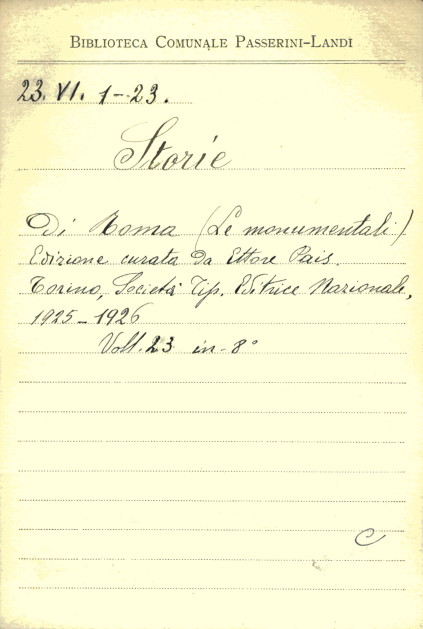 BIBLIOTECA COMUNALE PASSERINI-LANDI
23. VI. 1-23.
Storie
Di Roma (Le monumentali)
Edizione curata da Ettore Pais.
Torino, Società Tip. Editrice Nazionale,
1925-1926
Voll. 23 in-8°
C